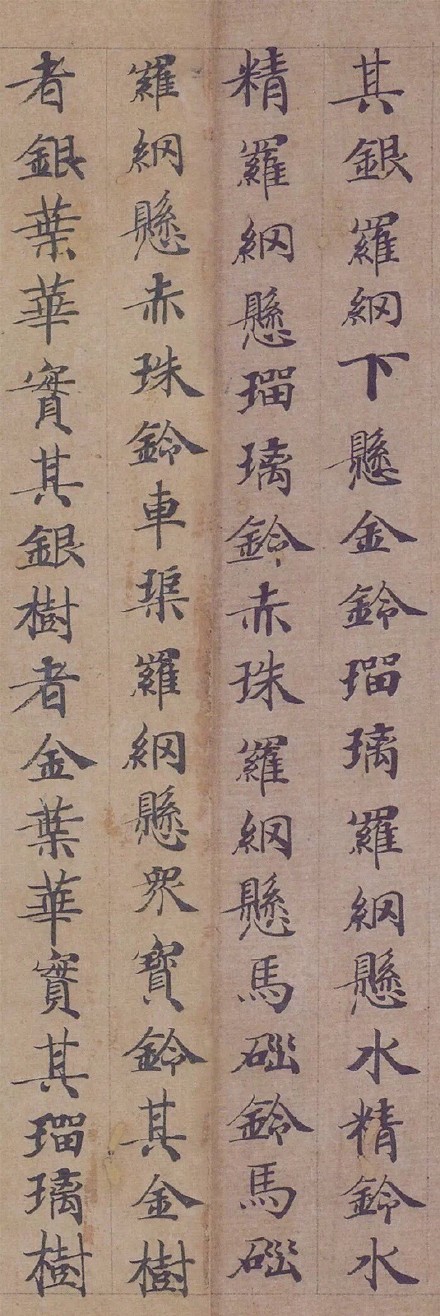 其銀羅網下懸金鈴瑠璃羅網懸水精鈴水
精羅網懸瑠璃鈴赤珠羅網懸馬碯鈴馬碯
羅網懸赤珠鈴車璖羅網懸衆寶鈴其金樹
者銀葉華實其銀樹者金葉華實其瑠璃樹